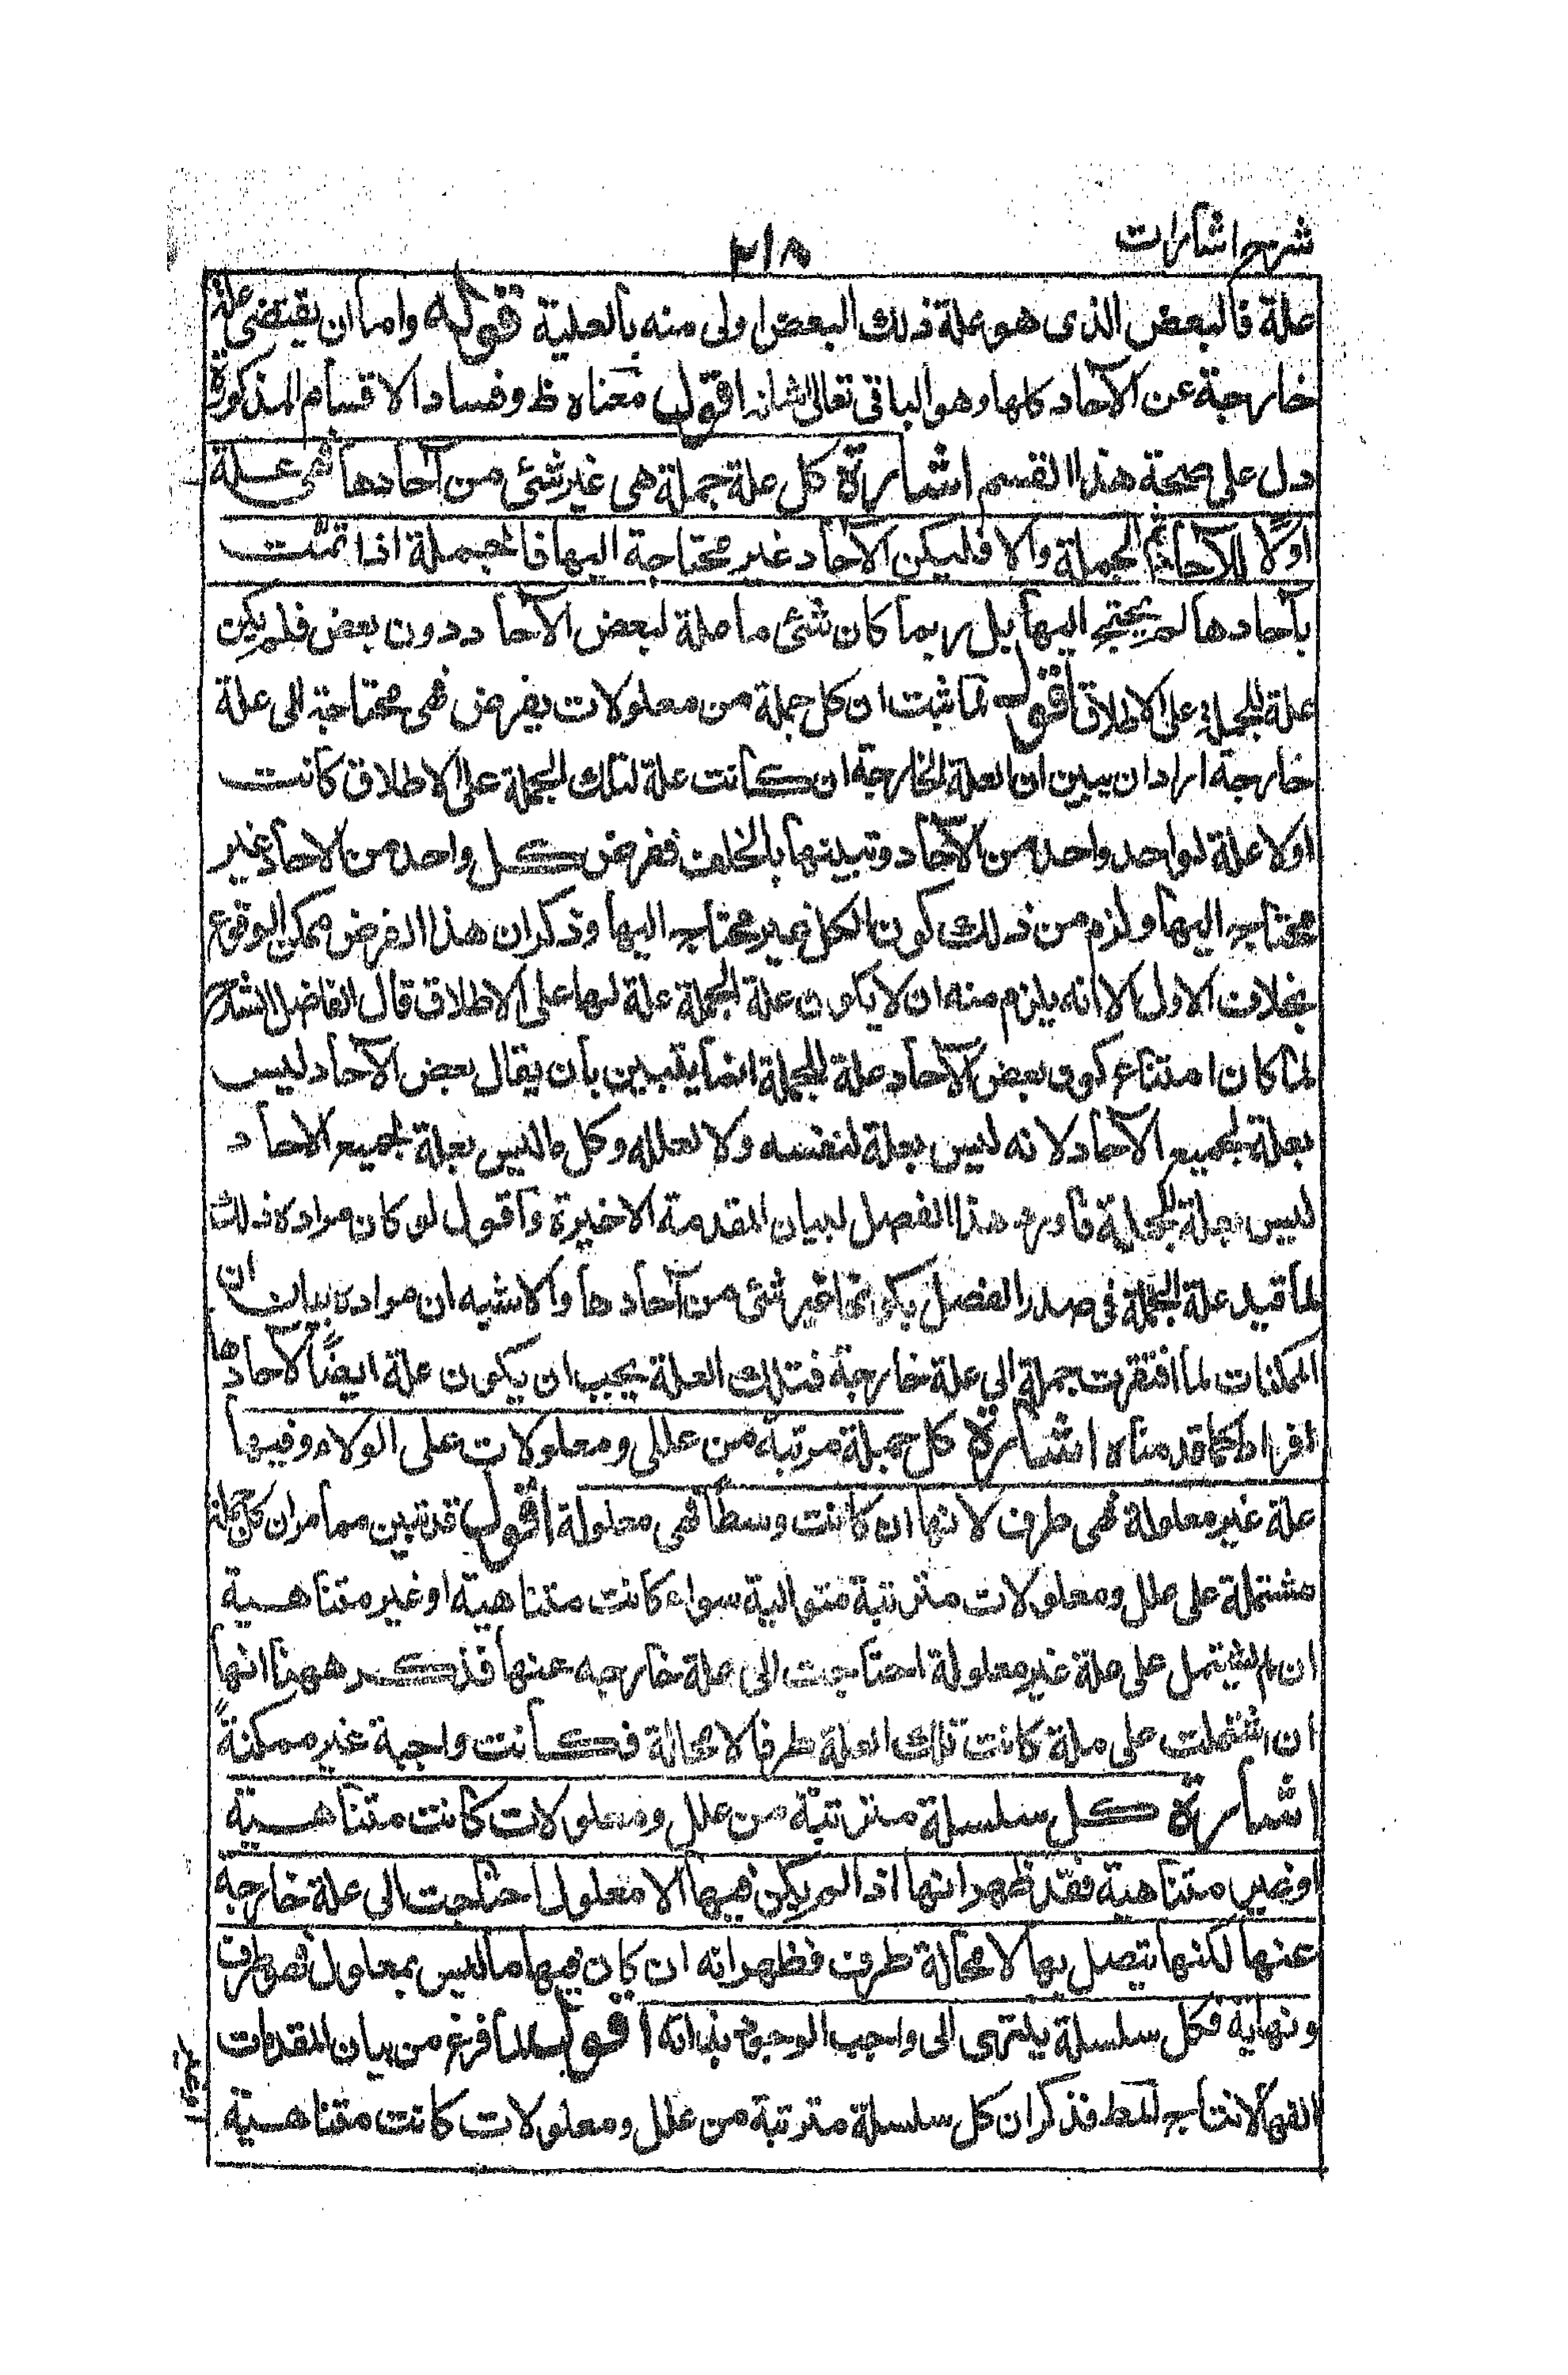 شرح اشارات
٢١٨
علة فالبعض الذى هو علة ذلك البعض اولى منه بالعلية قوله واما ان يقتضى علة
خارجة عن الآحاد كلها وهو الباقى اقول معناه ظ وفساد الاقسام المذكورة
دل على صحة هذا القسم اشارة كل علة جملة هى غير شئ من آحادها فهى علة
اولا للآحاد ثم للجملة والا فليكن الآحاد غير محتاجة اليها فالجملة اذا تمت
بآحادها لم يحتج اليها بل ربما كان شئ ما علة لبعض الآحاد دون بعض فلم يكن
علة للجملة على الاطلاق اقول لما ثبت ان كل جملة من معلولات يفرض فهى محتاجة الى علة
خارجة اراد ان يبين ان العلة الخارجة ان كانت علة لتلك الجملة على الاطلاق كانت
اولا علة لواحد واحد من الآحاد وتبيينها بالخلف ففرض كل واحد من الآحاد غير
محتاجه اليها ولزم من ذلك كون الكل غير محتاجه اليها وذكر ان هذا الفرض ممكن الوقوع
بخلاف الاول الا انه يلزم منه ان لا يكون علة الجملة علة لها على الاطلاق قال الفاضل الشارح
لما كان امتناع كون بعض الآحاد علة للجملة انما يتبين بان يقال بعض الآحاد ليس
بعلة لجميع الآحاد لانه ليس بعلة لنفسه ولا لعلله وكل ما ليس بعلة لجميع الآحاد
ليس بعلة للجملة فاورد هذا الفصل لبيان المقدمة الاخيرة واقول لو كان مراده ذلك
لما قيد علة الجملة فى صدر الفصل بكونها غير شئ من آحادها والاشبه ان مراده بيان ان
الممكنات لما افتقرت جملة الى علة خارجة فتلك العلة يجب ان يكون علة ايضا لآحادها
افرادا كما قدمناه اشارة كل جملة مرتبة من علل ومعلولات على الولاء وفيها
علة غير معلولة فهى طرف لانها ان كانت وسطا فهى معلولة اقول قد تبين مما مر ان كل جملة
مشتملة على علل ومعلولات مترتبة متوالية سواء كانت متناهية او غير متناهية
ان لم يشتمل على علة غير معلولة احتاجت الى علة خارجه عنها فذكر ههنا انها
ان اشتملت على علة كانت تلك العلة طرفا لا محالة فكانت واجبة غير ممكنة
اشارة كل سلسلة مترتبة من علل ومعلولات كانت متناهية
او غير متناهية فقد ظهر انها اذا لم يكن فيها الا معلول احتاجت الى علة خارجه
عنها لكنها يتصل بها لا محالة طرف فظهر انه ان كان فيها ما ليس بمعلول فهو طرف
ونهاية فكل سلسلة ينتهى الى واجب الوجود بذاته اقول لما فرغ من بيان المقدمات
الفها لانتاج المط فذكر ان كل سلسلة مترتبة من علل ومعلولات كانت متناهية